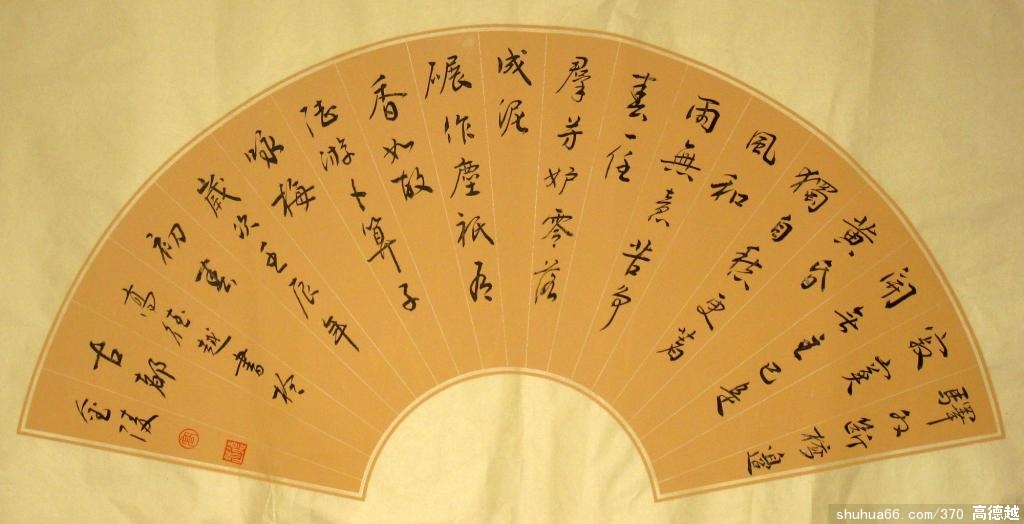 驛外斷橋邊
寂寞
開无主已是
黃昏
獨自愁更著
風和
雨無意苦争
春一任
羣芳妒零落
成泥
碾作塵祇有
香如故
陸游卜算子
咏梅
歲次壬辰年
初春
高德越書於
古都
金陵
shuhua66.com/370 高德越